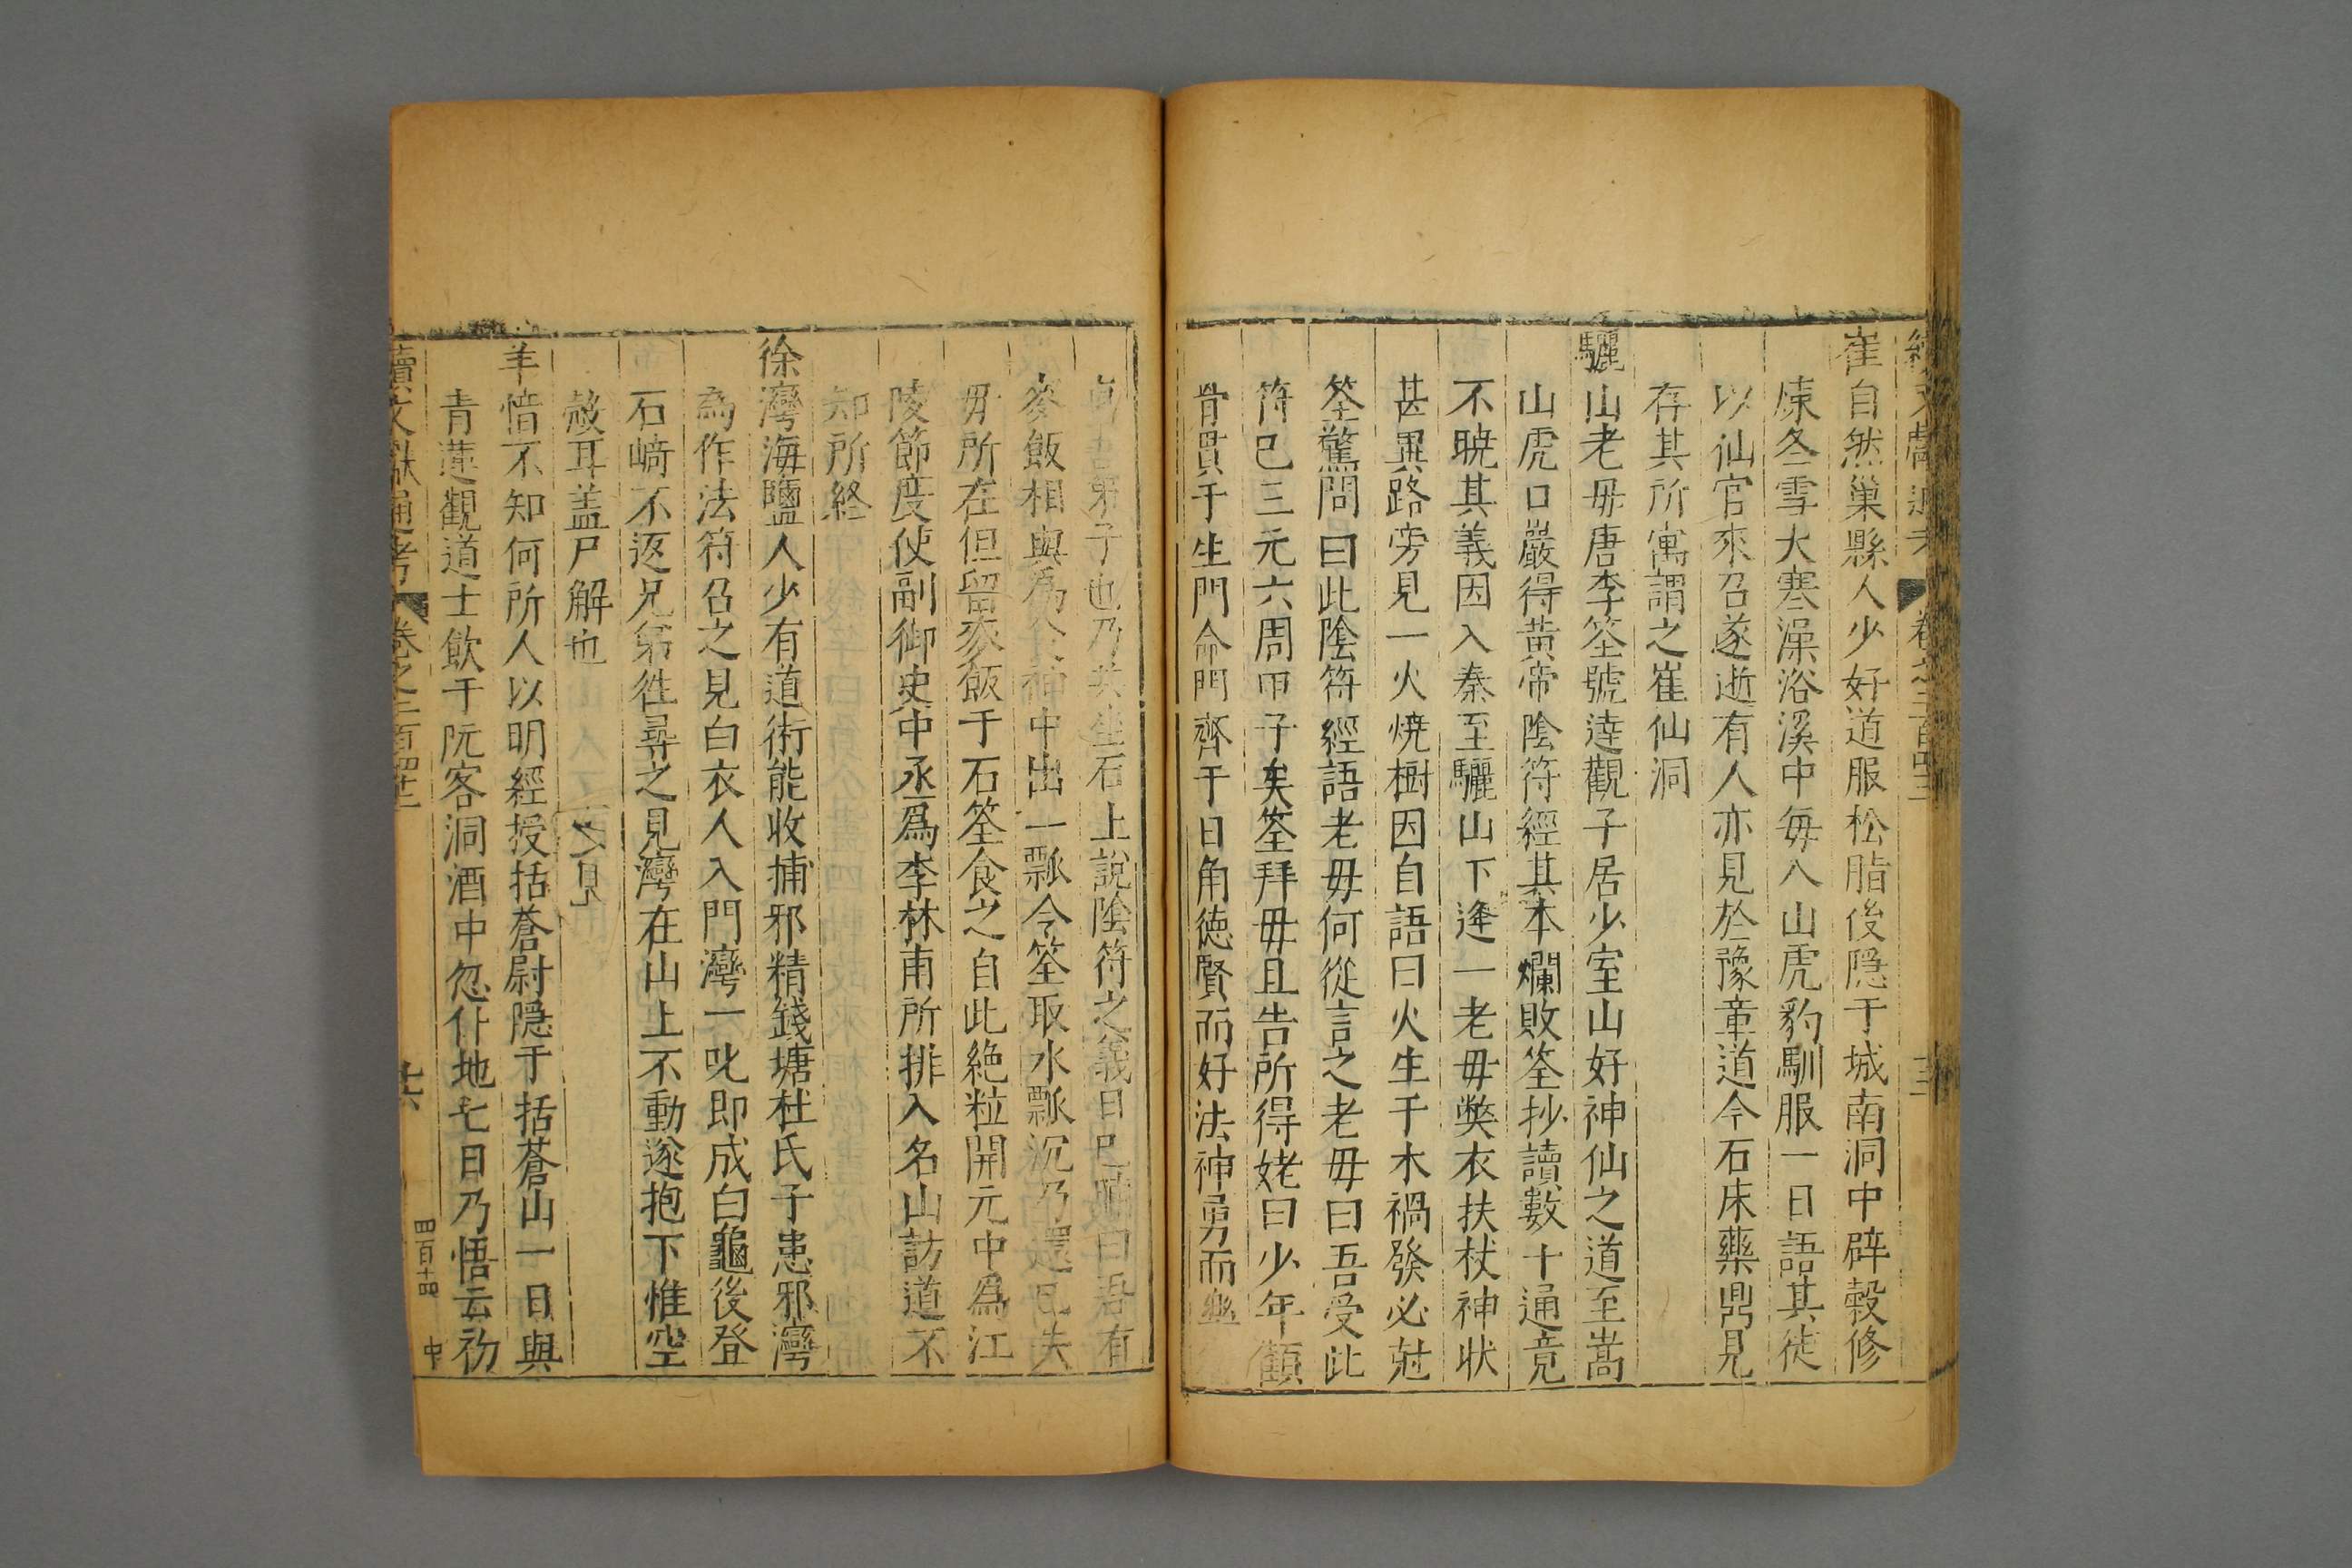 續文獻通考 卷之二百四十三
崔自然巢縣人少好道服松脂後隱于城南洞中辟穀修
煉冬雪大寒澡浴溪中每入山虎豹馴服一日語其徒
以仙官來召遂逝有人亦見於豫章道今石床藥鼎見
存其所寓謂之崔仙洞
驪山老毋唐李筌號達觀子居少室山好神仙之道至嵩
山虎口巖得黃帝陰符經其本爛敗筌抄讀數十通竟
不曉其義因入秦至驪山下逢一老毋獘衣扶杖神狀
甚異路旁見一火燒樹因自語曰火生于木禍發必尅
筌驚問曰此陰符經語老毋何從言之老毋曰吾受此
符已三元六周甲子矣筌拜毋且告所得姥曰少年顴
骨貫于生門命門齊于日角德賢而好法神勇而樂
真吾弟子也乃共坐石上說陰符之義曰已晡曰吾有
麥飯相與為食袖中出一瓢令筌取水瓢沉乃還已失
毋所在但留麥飯于石筌食之自此絕粒開元中為江
陵節度使副御史中丞為李林甫所排入名山訪道不
知所終
徐灣海鹽人少有道術能收捕邪精錢塘杜氏子患邪灣
為作法符召之見白衣人入門灣一叱即成白龜後登
石崎不返兄弟徃尋之見灣在山上不動遂抱下惟空
殼耳盖尸解也
羊愔不知何所人以明經授括蒼尉隱于括蒼山一日與
青蓮觀道士飲于阮客洞酒中忽仆地七日乃悟云初
續文獻通考 卷之二百四十三
四百十四 中